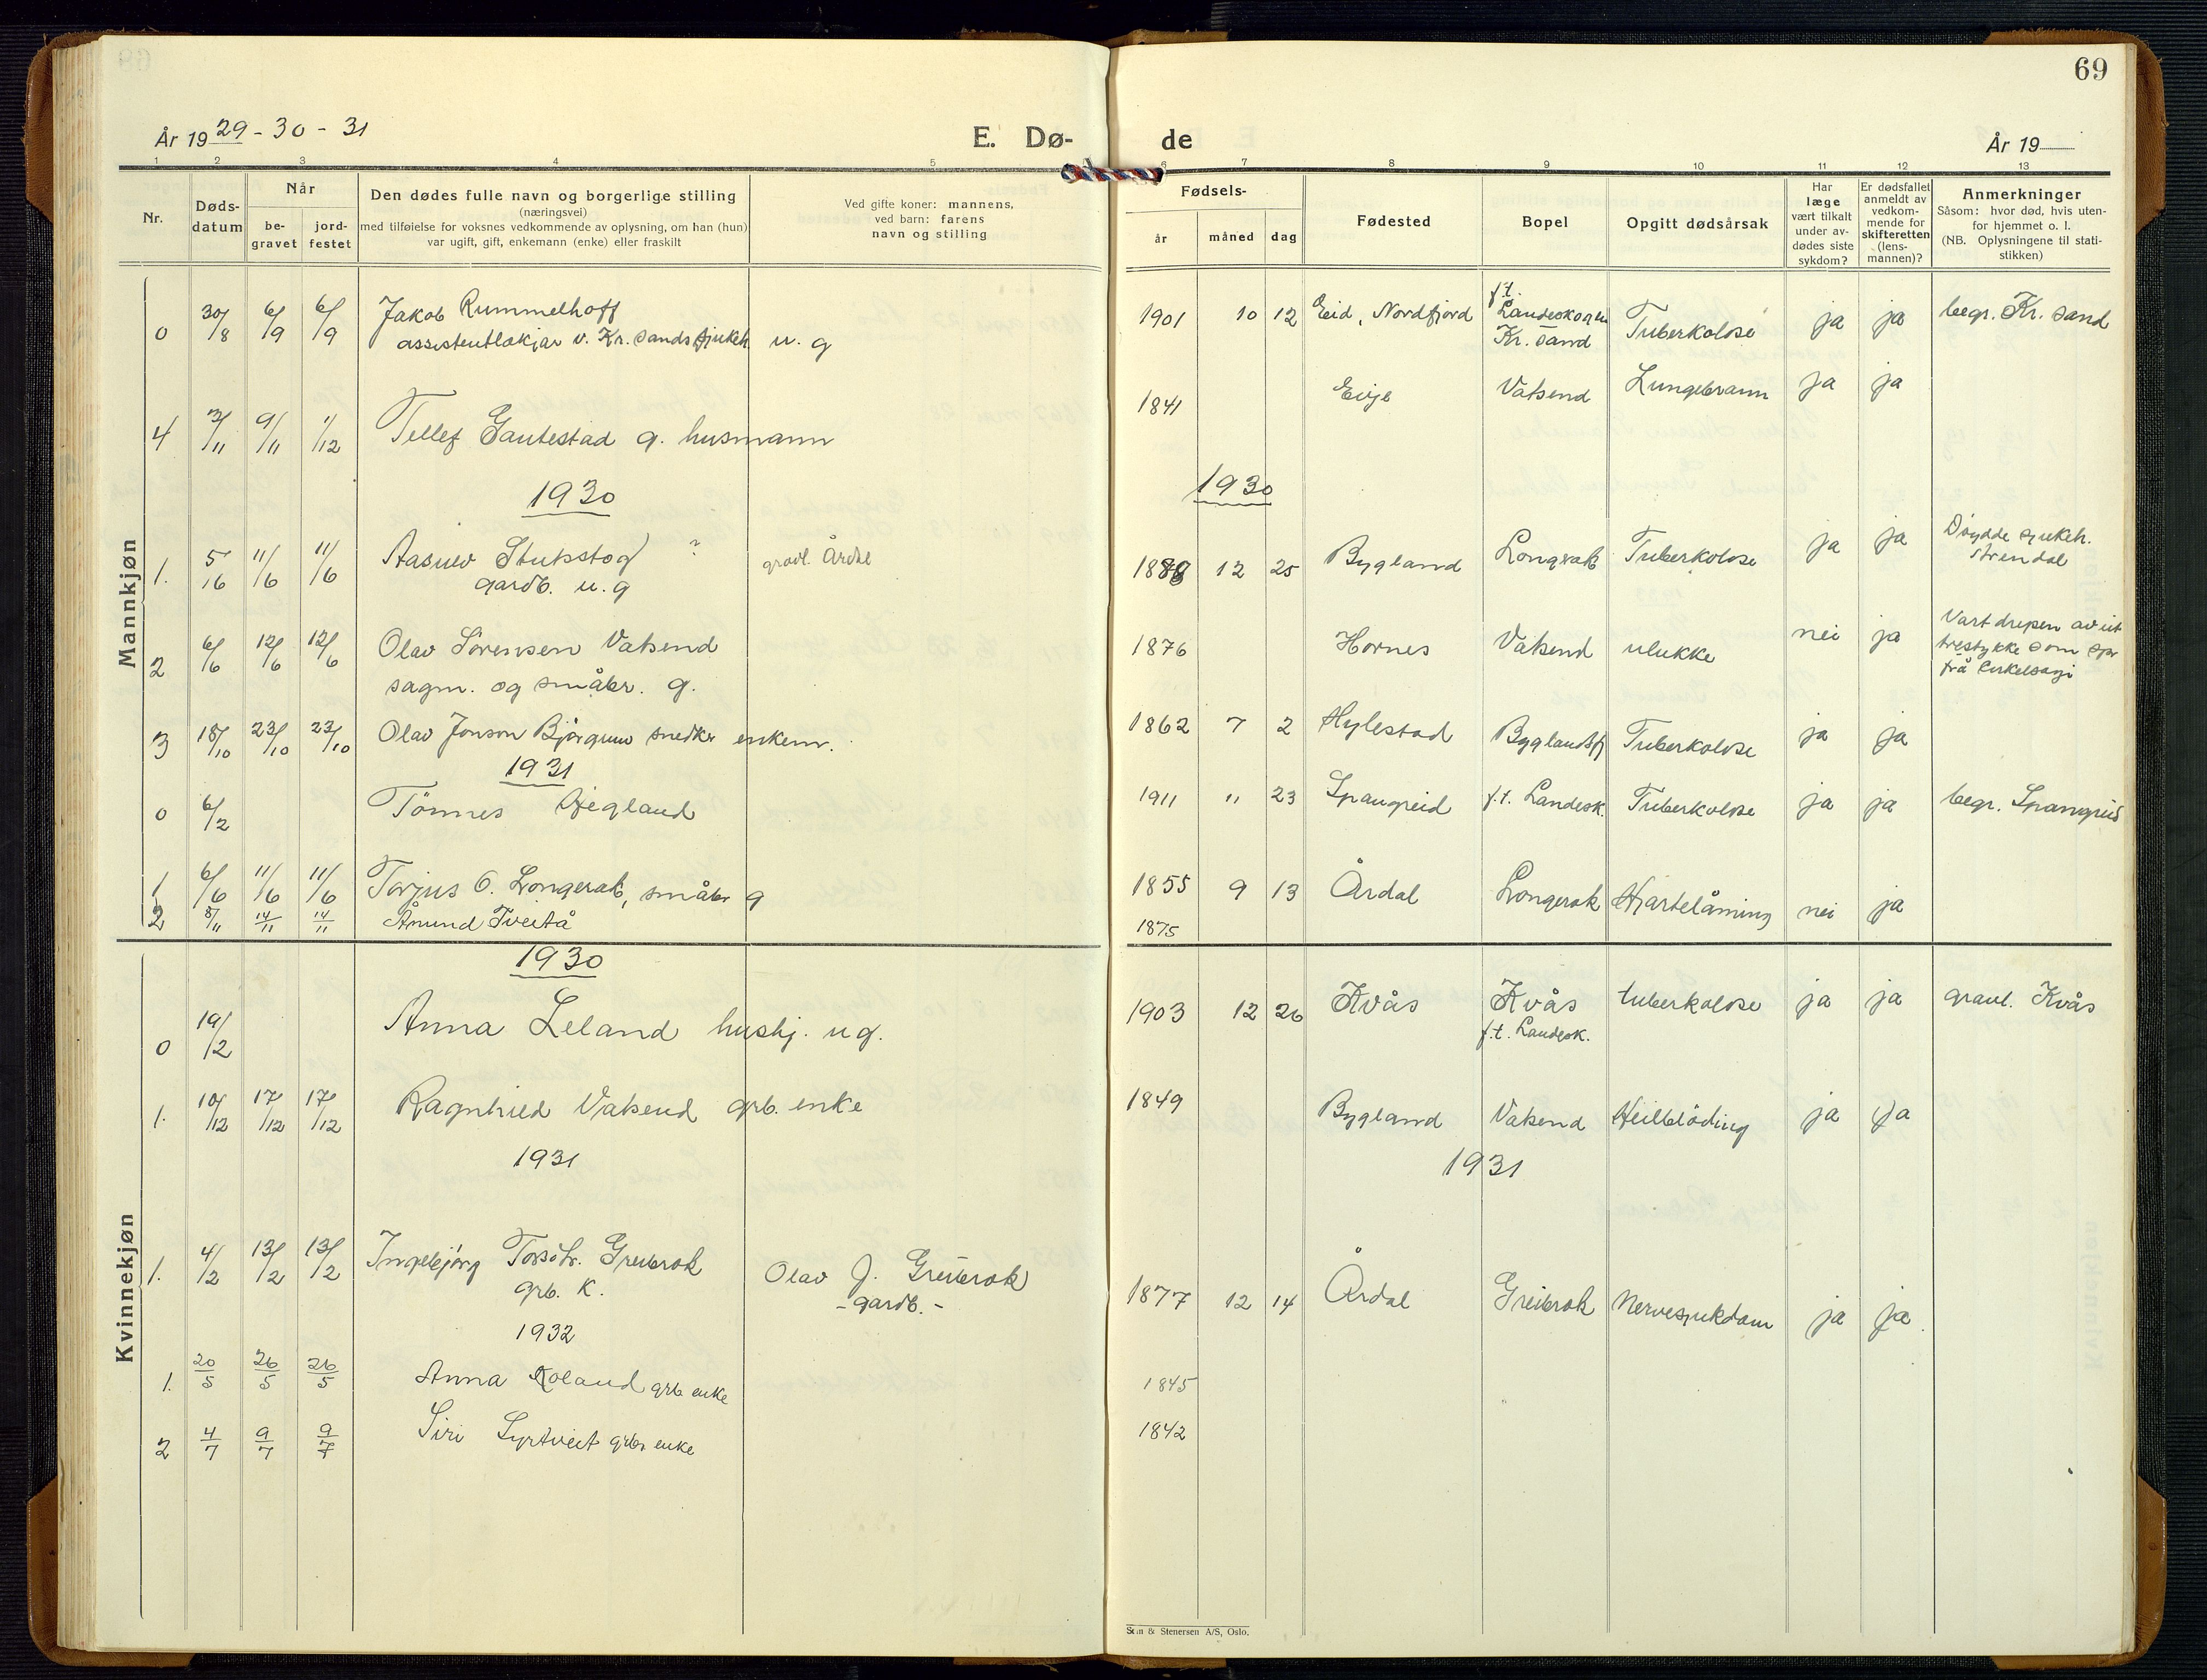 69
År 1929 - 30 - 31
E. Dø-
de
År 19
1 2 3 4 5 6 7 8 9 10 11 12 13
Nr.
Døds-
datum
Når
be-
gravet
jord-
festet
Den dødes fulle navn og borgerlige stilling
(næringsvei)
med tilføielse for voksnes vedkommende av oplysning, om han (hun)
var ugift, gift, enkemann (enke) eller fraskilt
Ved gifte koner: mannens,
ved barn: farens
navn og stilling
Fødsels-
år måned dag
Fødested
Bopel
Opgitt dødsårsak
Har
læge
vært tilkalt
under av-
dødes siste
sykdom?
Er dødsfallet
anmeldt av
vedkom-
mende for
skifteretten
(lens-
mannen)?
Anmerkninger
Såsom: hvor død, hvis uten-
for hjemmet o. l.
(NB. Oplysningene til stati-
stikken)
Mannkjøn
0 30/8 6/9 6/9 Jakob Rummelhoff
assistentlækjar v. Kr.sands sjukeh. u. g
1901 10 12 Eid, Nordfjord f.t. Landeskogen Kr. sand Tuberkolose ja ja begr. Kr. sand
4 3/11 9/11 1/12 Tellef Gautestad g. husmann
1841 Evje Vatsend Lungebrann ja ja
1930
1930
1. 5/16 11/6 11/6 Aasulv Stupstog ? gravl. Årdal
gardb. u. g
188 12 25 Bygland Longerak Tuberkolose ja ja Døydde sjukeh.
2 6/6 12/6 12/6 Olav Sörensen Vatsend
sagm. og småbr. g.
1876 Hornes Vatsend ulukke nei ja Vart drepen av eit
trestykke som spr
frå cirkelsagi
3 18/10 23/10 23/10 Olav Jonson Björgum snedker enkem.
1862 7 2 Hylestad Byglandsfj Tuberkolose ja ja
1931
0 6/2 Tönnes Hegland
1911 11 23 Spangreid f.t. Landesk. Tuberkolose ja ja begr. Spangreid
1 6/6 11/6 11/6 Torjus O. Longerak, småbr g
1855 9 13 Årdal Longerak Hjartelåming nei ja
2 8/11 14/11 14/11 Ånund Tveitå
1875
Kvinnekjøn
1930
0 19/2 Anna Leland hushj. ug.
1903 12 26 Kvås Kvås tuberkolose ja ja gravl. Kvås
f.t. Landesk.
1. 10/12 17/12 17/12 Ragnhild Vatsend grb. enke
1849 Bygland Vatsend Heilblöding ja ja
1931
1931
1. 4/2 13/2 13/2 Ingebjörg Torsdtr. Greibrok
grb. k.
Olav J. Greibrok
- gardb. -
1877 12 14 Årdal Greibrok Nervesjukdom ja ja
1932
1. 20/5 26/5 26/5 Anna Roland grb enke
1845
2 4/7 9/7 9/7 Siri Syrtveit grbr enke
1842
Sem & Stenersen A/S, Oslo.